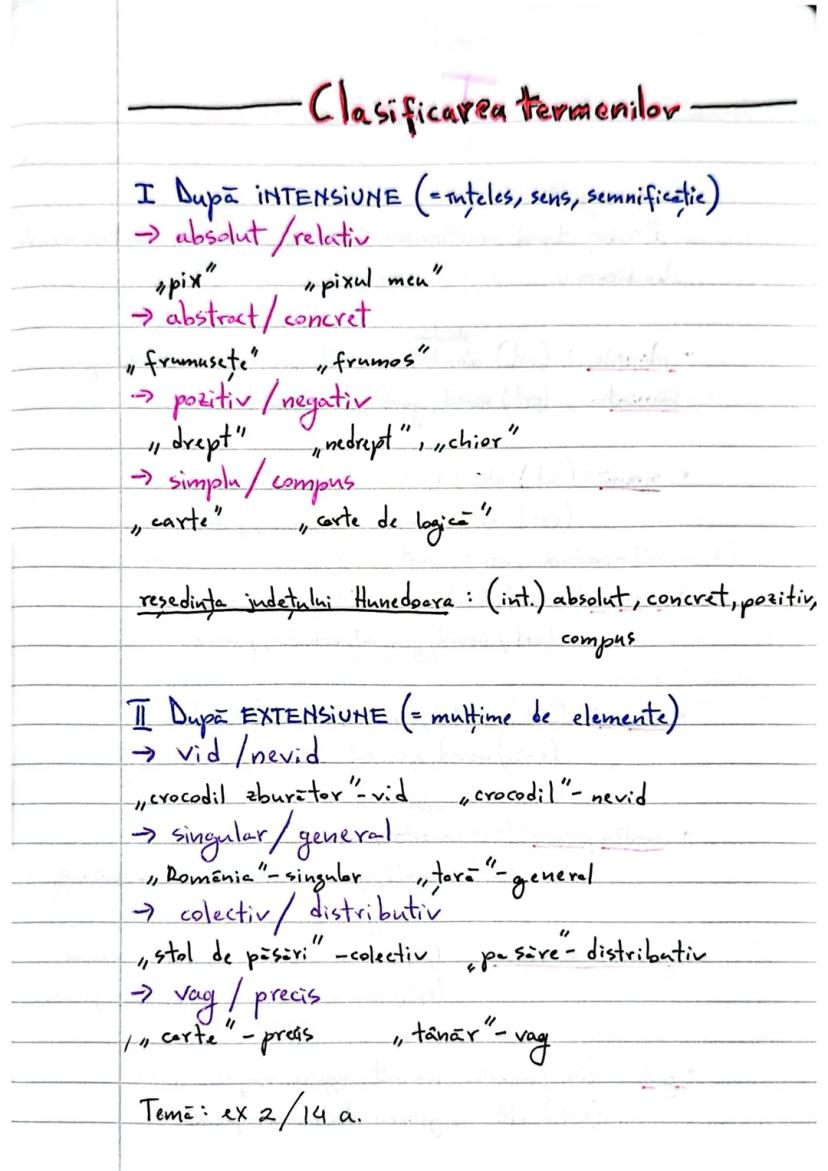 Clasificarea termenilor
I După INTENSIUNE (= înțeles, sens, semnificație)
→ absolut / relativ
„pix” „pixul meu”
→ abstract / concret
„frumusețe” „frumos”
→ pozitiv / negativ
„drept” „nedrept”, „chior”
→ simplu / compus
„carte” „carte de logică”
reședința județului Hunedoara : (int.) absolut, concret, pozitiv,
compus
II După EXTENSIUNE (= mulțime de elemente)
→ vid / nevid
„crocodil zburător” - vid „crocodil” - nevid
→ singular / general
„România” - singular „țară” - general
→ colectiv / distributiv
„stol de păsări” - colectiv „pasăre” - distributiv
→ vag / precis
„carte” - precis „tânăr” - vag
Temă : ex 2/14 a.